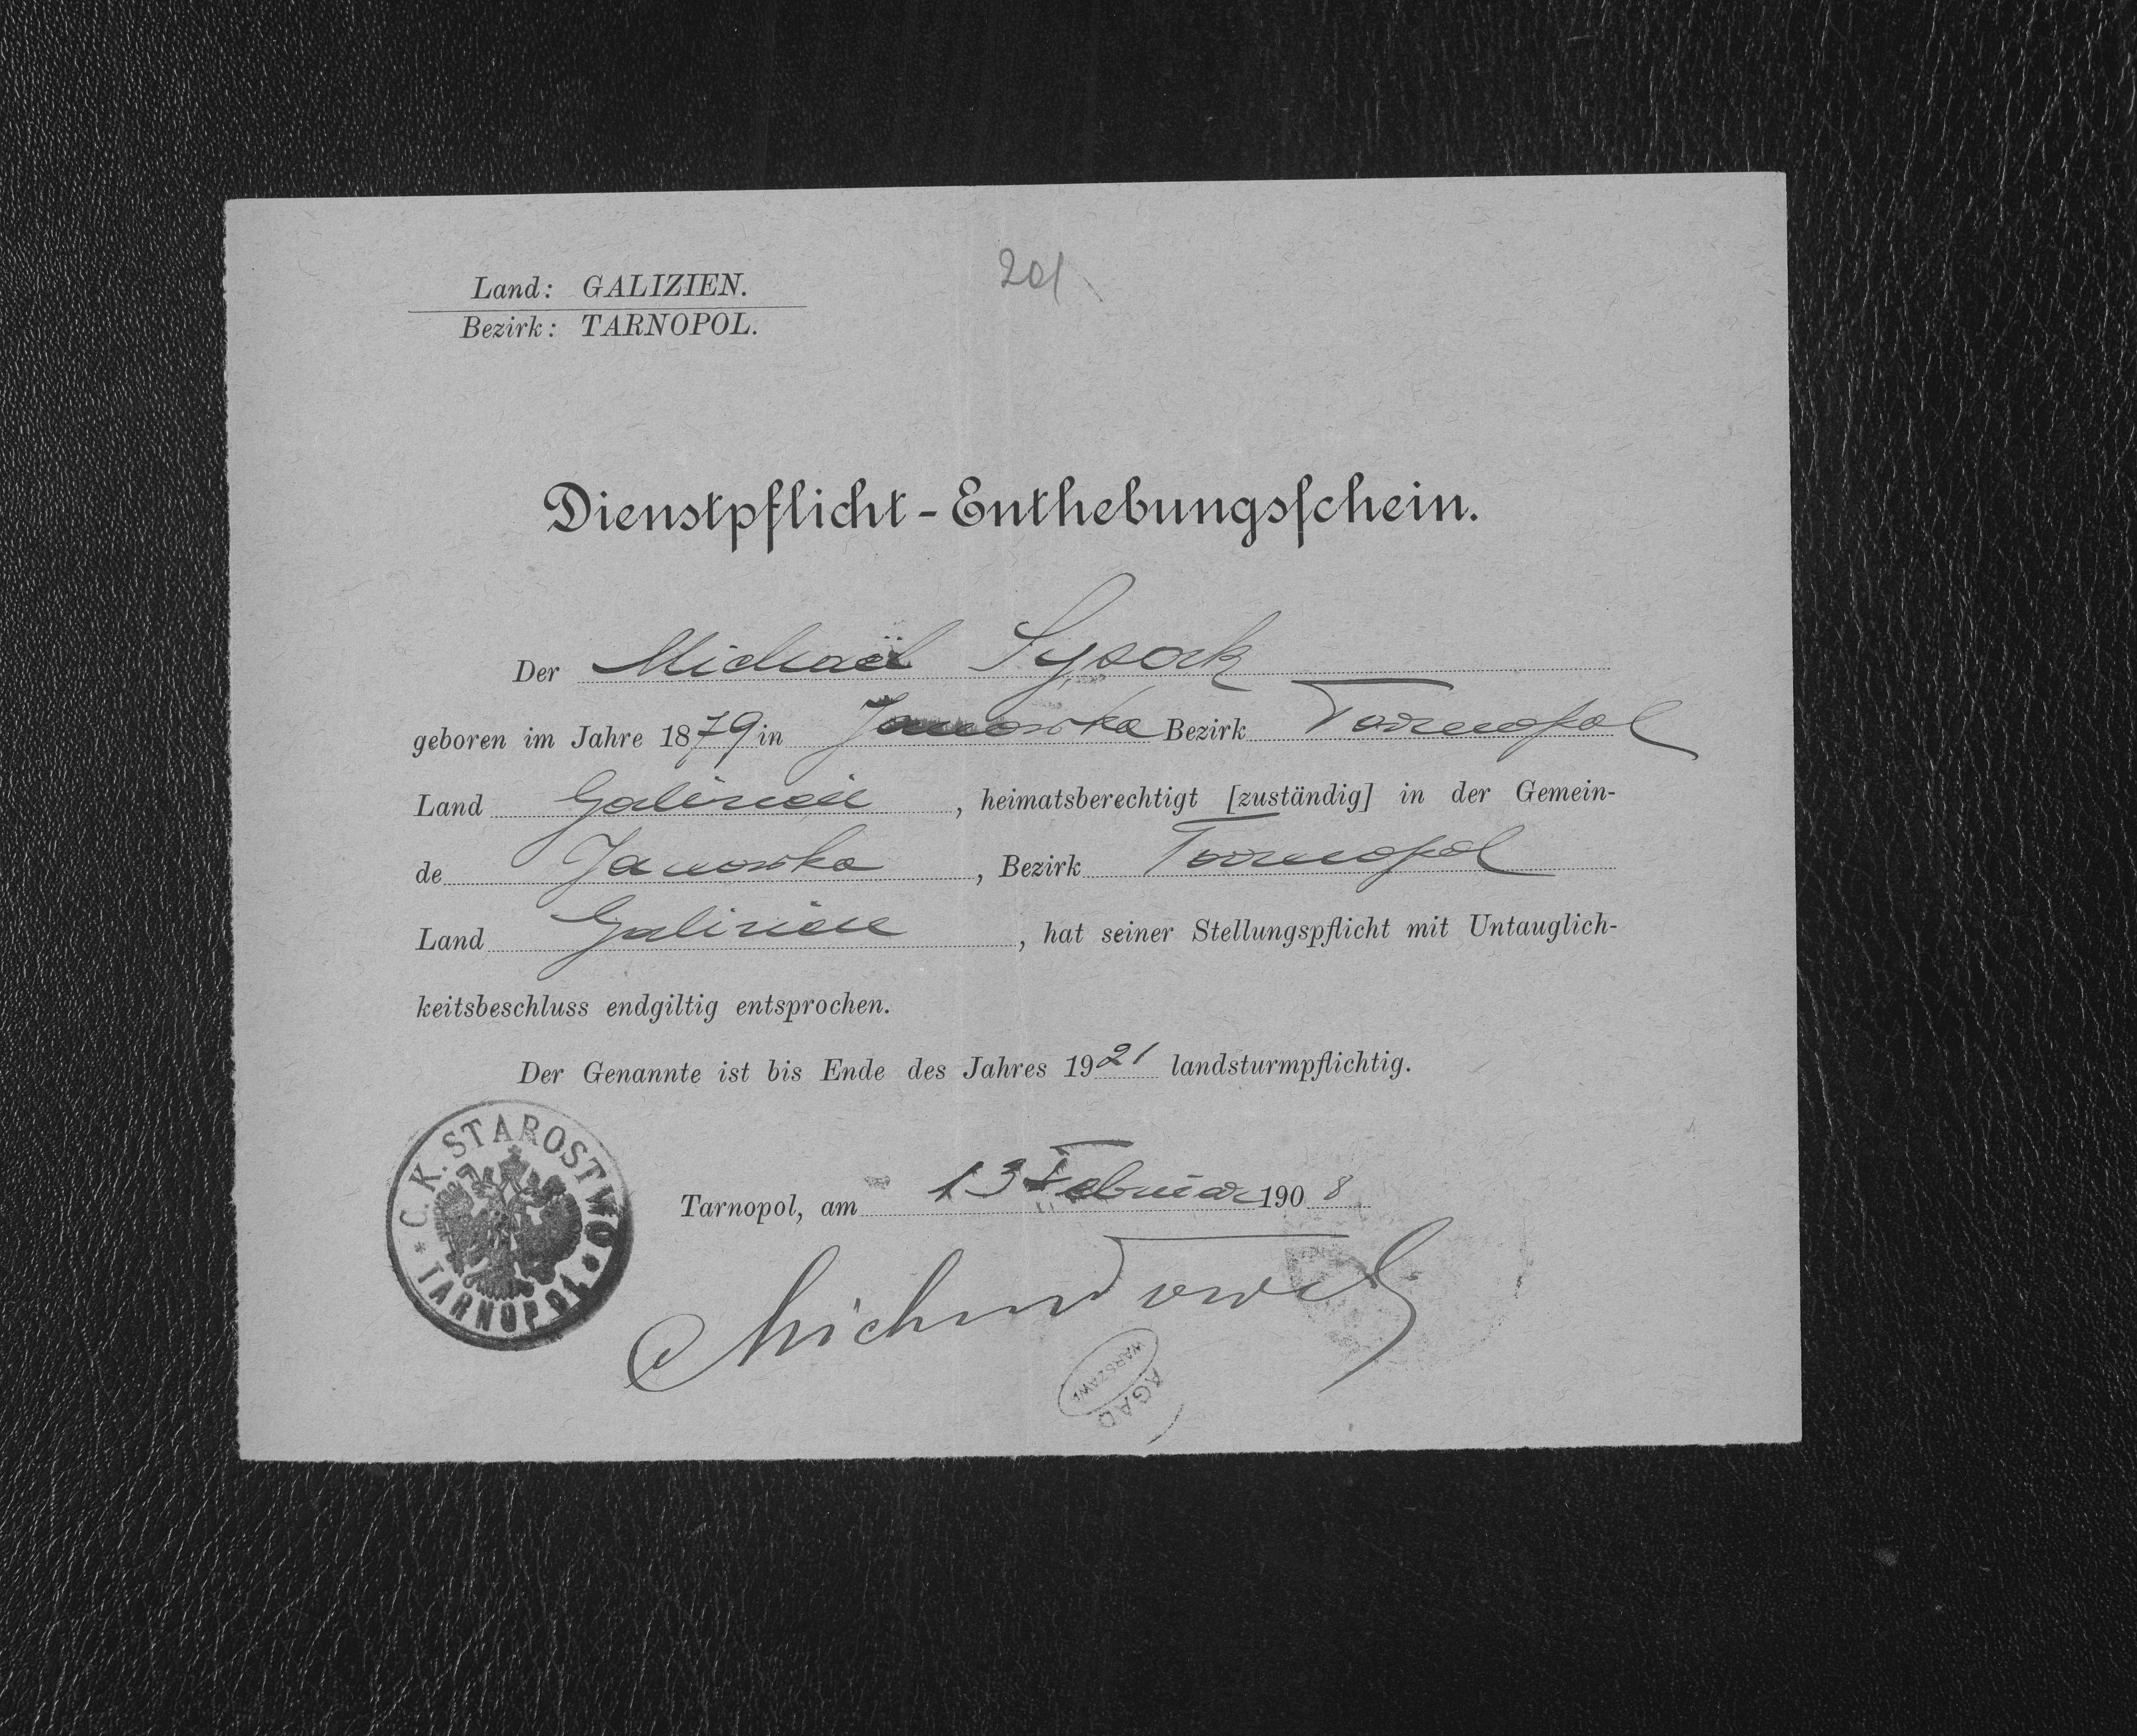 201
Land: GALIZIEN.
Bezirk: TARNOPOL.
Dienstpflicht-Enthebungsschein.
Der Michaël Sysak
geboren im Jahre 1879 in Janowka Bezirk Tarnopol
Land Galizien, heimatsberechtigt [zuständig] in der Gemein-
de Janowka, Bezirk Tarnopol
Land Galizien, hat seiner Stellungspflicht mit Untauglich-
keitsbeschluss endgiltig entsprochen.
Der Genannte ist bis Ende des Jahres 1921 landsturmpflichtig.
C. K. STAROSTWO * TARNOPOL *
Tarnopol, am 13 Februar 1908
AGAD
WARSZAWA